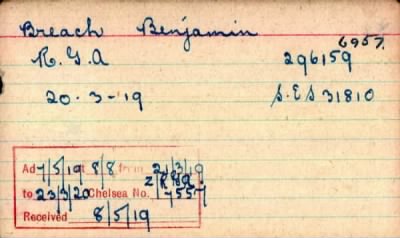 Breach Benjamin
6957.
R.G.A 296159
20-3-19 S.ES 31810
Ad 7/5/19 at 8/8 from 21/3/19
to 23/3/20 Chelsea No. 1/7557
Received 8/5/19